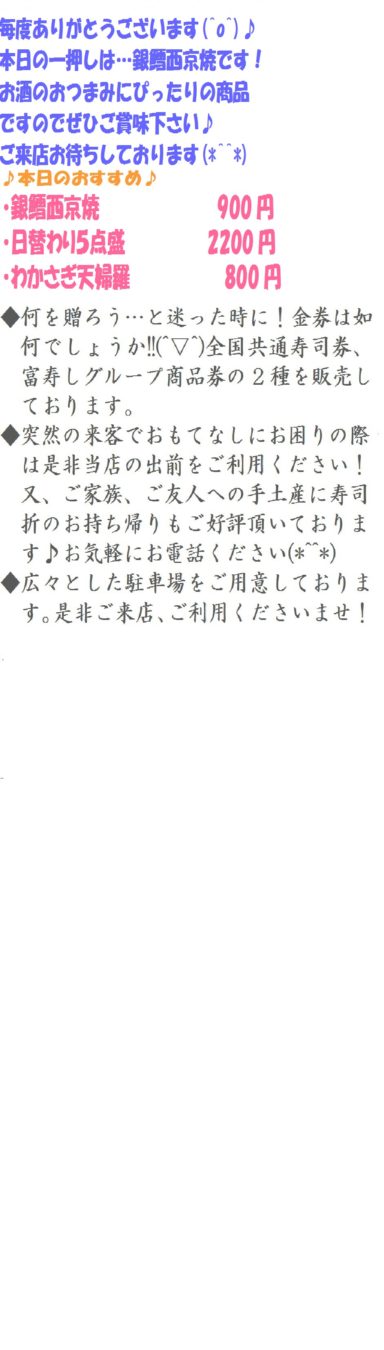 毎度ありがとうございます(^o^)♪
本日の一押しは…銀鱈西京焼です！
お酒のおつまみにぴったりの商品
ですのでぜひご賞味下さい♪
ご来店お待ちしております(*^^*)
♪本日のおすすめ♪
・銀鱈西京焼 900円
・日替わり5点盛 2200円
・わかさぎ天婦羅 800円
◆何を贈ろう…と迷った時に！金券は如
何でしょうか!!(^▽^)全国共通寿司券、
富寿しグループ商品券の２種を販売し
ております。
◆突然の来客でおもてなしにお困りの際
は是非当店の出前をご利用ください！
又、ご家族、ご友人への手土産に寿司
折のお持ち帰りもご好評頂いておりま
す♪お気軽にお電話ください(*^^*)
◆広々とした駐車場をご用意しておりま
す。是非ご来店、ご利用くださいませ！